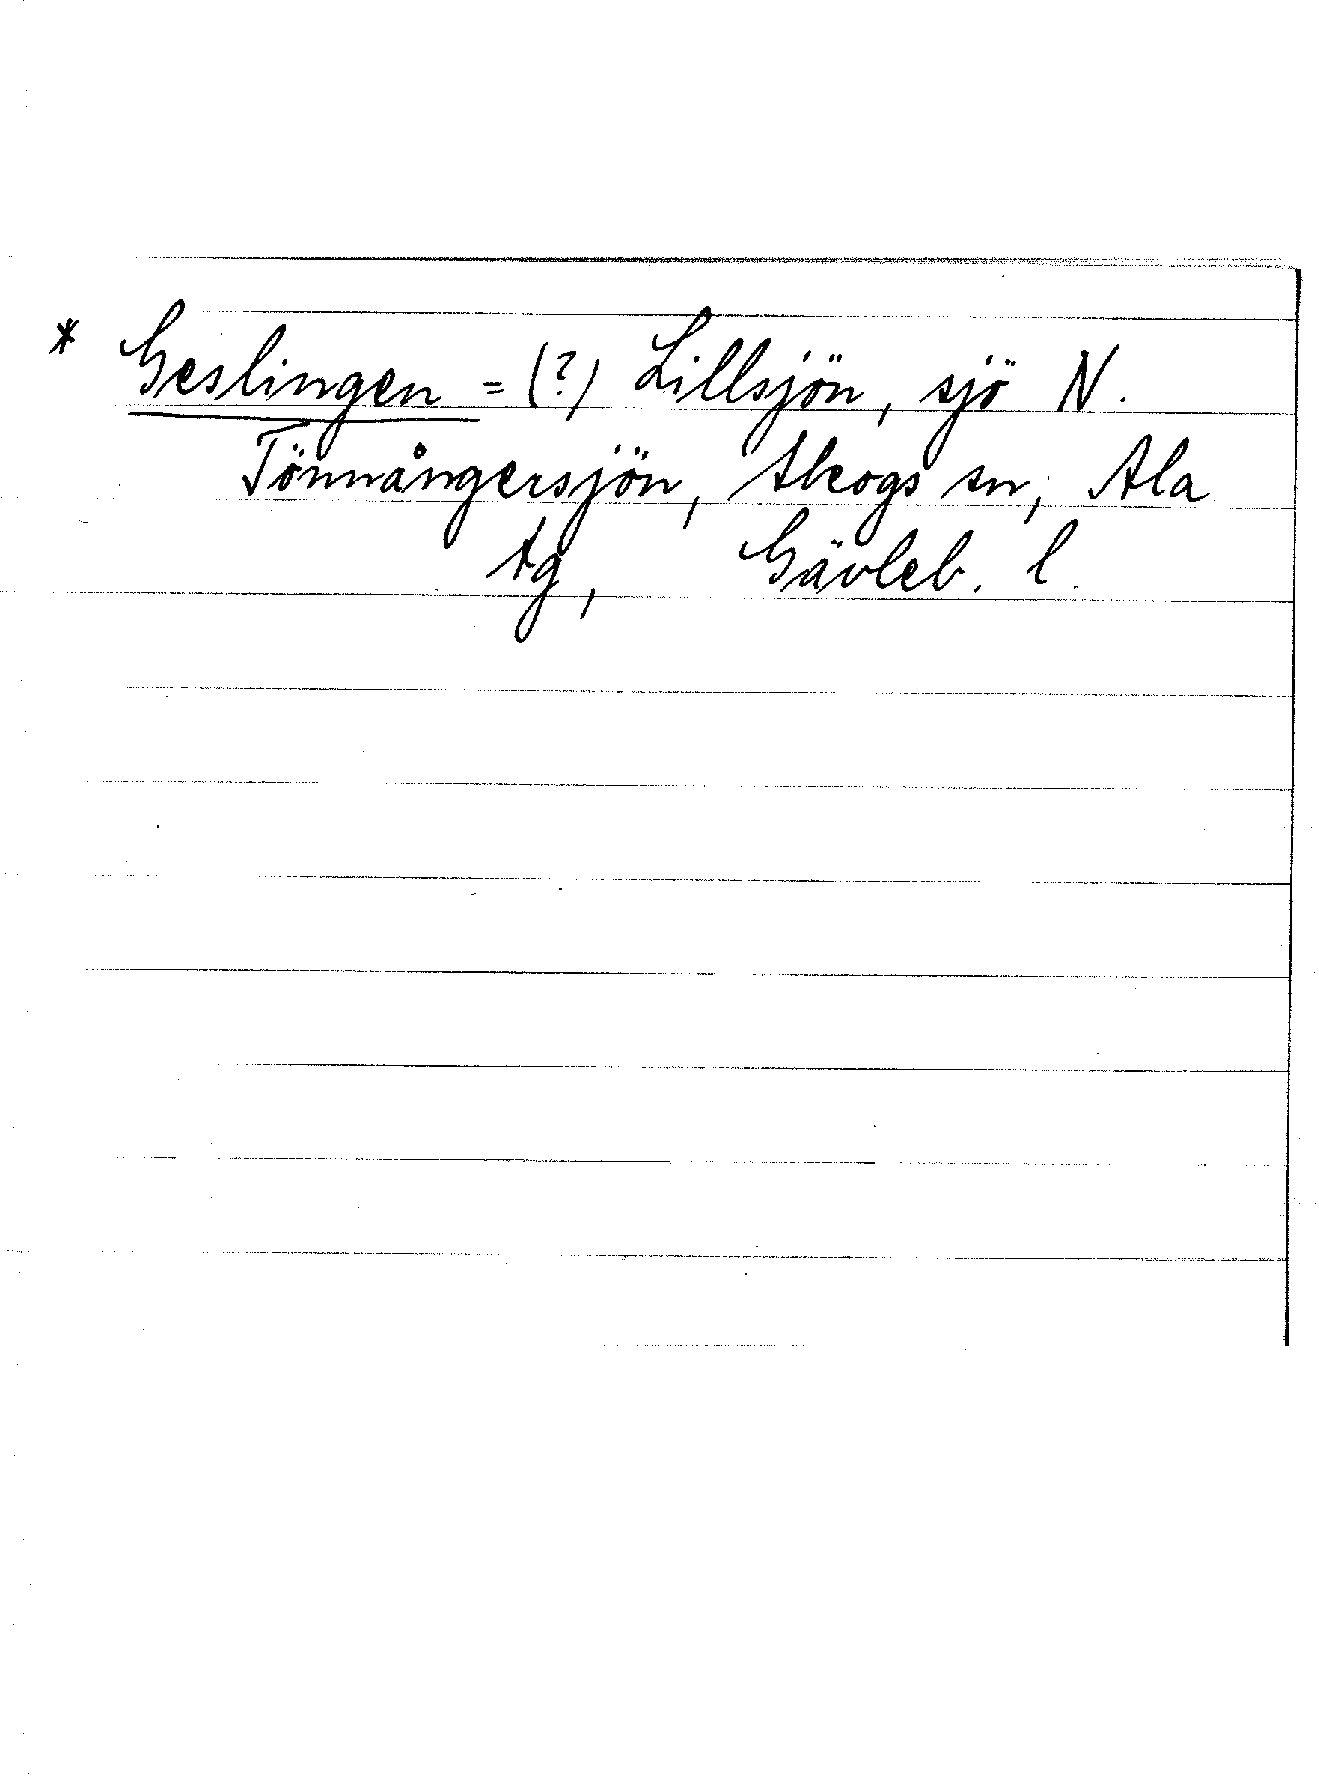 * Geslingen = (?) Lillsjön, sjö N.
Tönnångersjön, Skogs sn, Ala
tg, Gävleb. l.